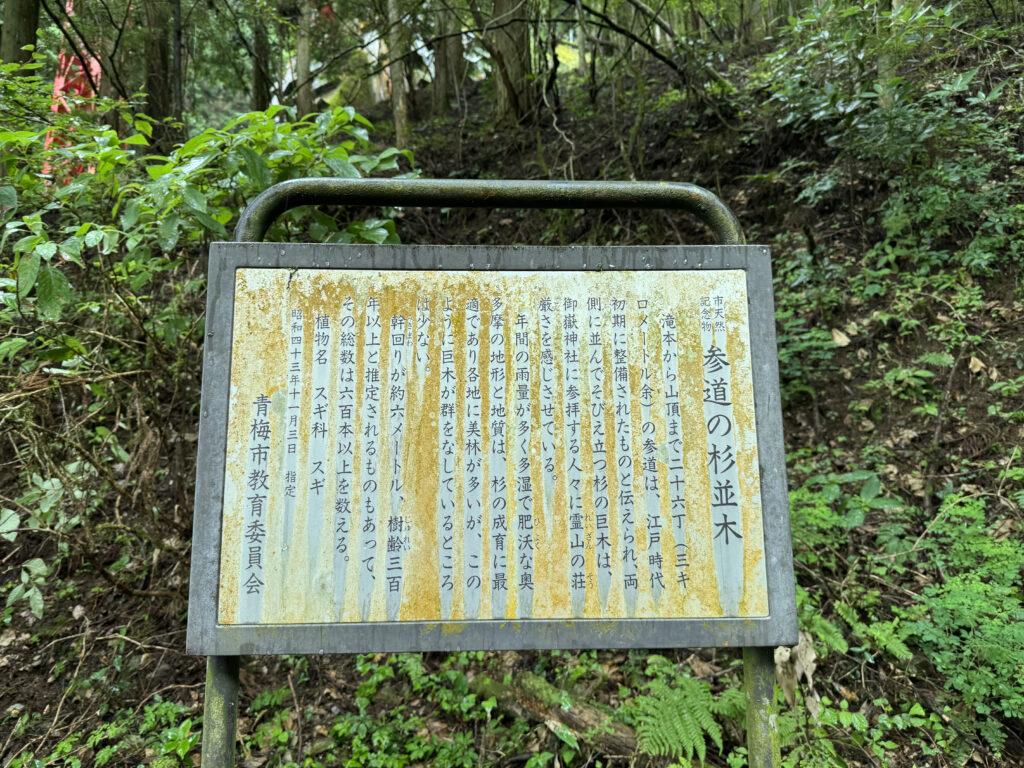 市天然
記念物
参道の杉並木
滝本から山頂まで二十六丁(三キ
ロメートル余)の参道は、江戸時代
初期に整備されたものと伝えられ、両
側に並んでそびえ立つ杉の巨木は、
御嶽神社に参拝する人々に霊山の荘
れいざん
そう
厳さを感じさせている。
年間の雨量が多く多湿で肥沃な奥
ひよく
多摩の地形と地質は、杉の成育に最
適であり各地に美林が多いが、この
ように巨木が群をなしているところ
は少ない。
幹回りが約六メートル、樹齢三百
じゅれい
年以上と推定されるものもあって、
その総数は六百本以上を数える。
植物名 スギ科 スギ
昭和四十三年十一月三日 指定
青梅市教育委員会